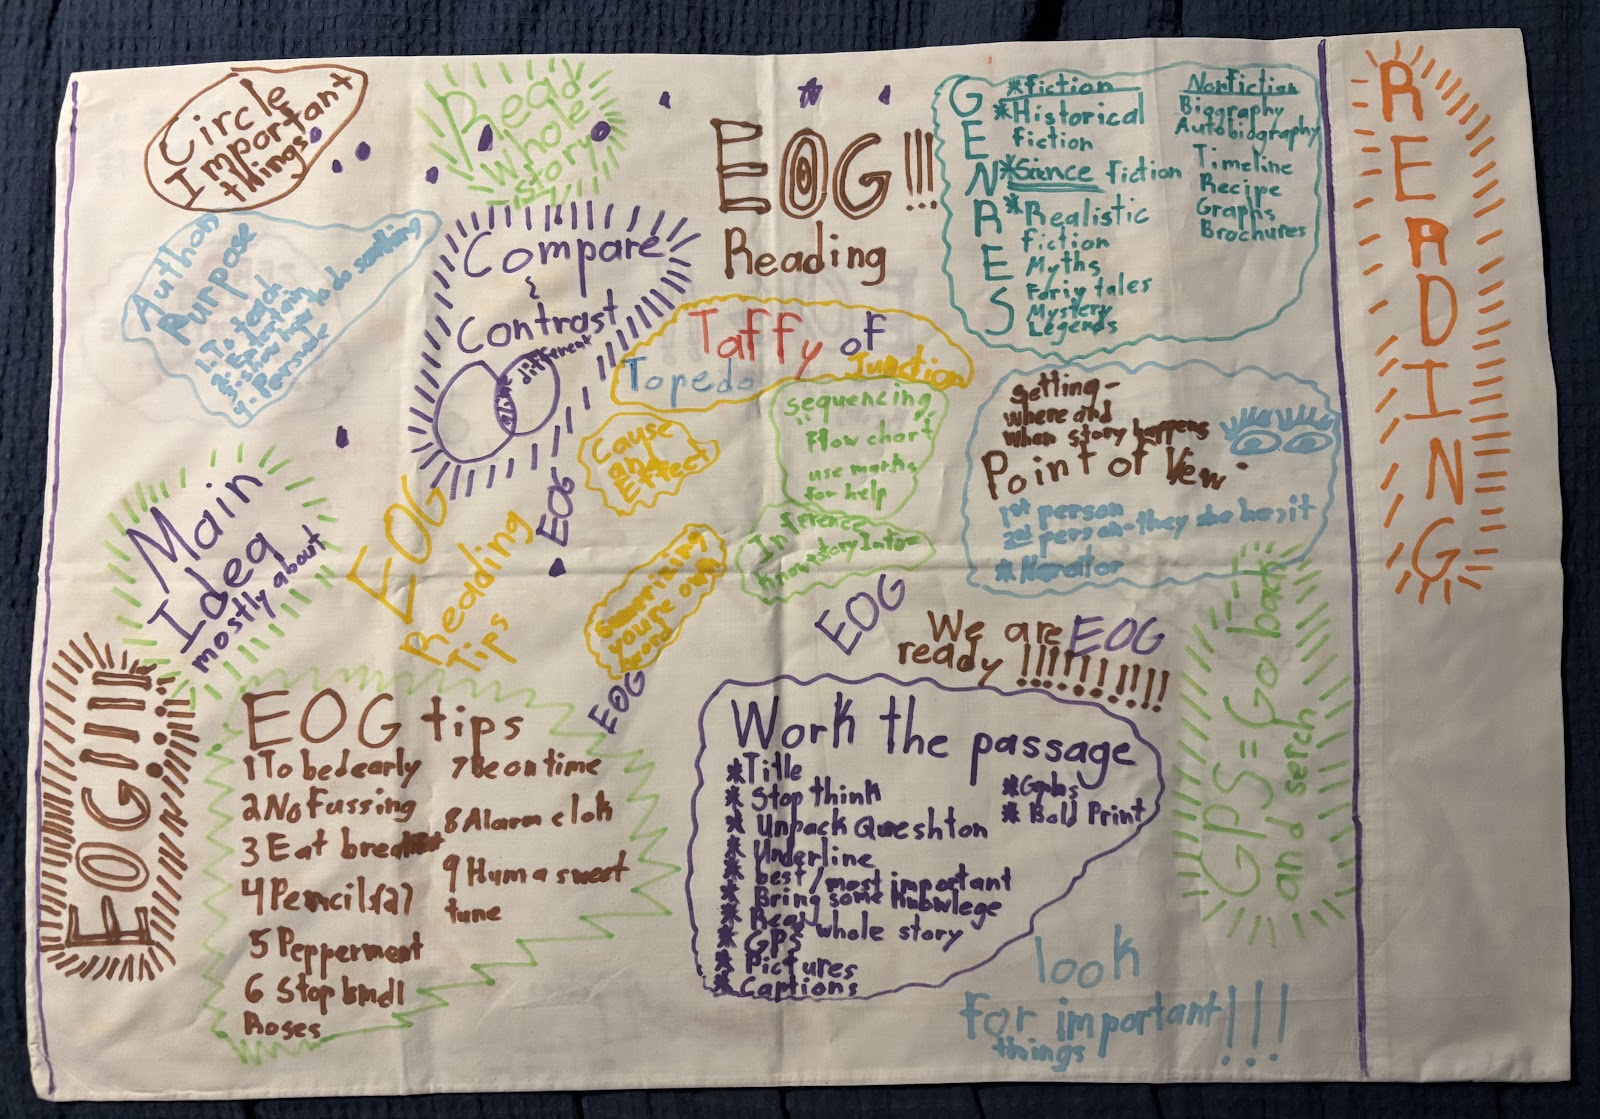 Circle
Important
things
Read
Whole
story!!
EOG!!!
Reading
GENRES
*fiction
*Historical
fiction
*Science fiction
*Realistic
fiction
Myths
Fariy tales
Mystery
Legends
Nonfiction
Biography
Autobiography
Timeline
Recipe
Graphs
Brochures
READING
Author
Purpose
1. To teach
2. Entertain
3. show how to do something
4. Persude
Compare
&
Contrast
alike
different
Taffy of
Topedo Junction
Cause
and
Effect
sequencing
Flow chart
use marks
for help
Inference
Know+story Info=
setting-
where and
when story happens
Point of View
1st person
2nd person-they she he,it
*Narator
Main
Idea
mostly about
EOG
Reading
Tips
EOG
Sumerizing
youre own
word
EOG
EOG
We are EOG
ready !!!!!!!!!!
GPS=Go back
and serch
EOG!!!!
EOG tips
1 To bed early
2 No Fussing
3 Eat breakfast
4 Pencils(2)
5 Pepperment
6 Stop smell
Roses
7 Be on time
8 Alarm clok
9 Hum a sweet
tune
Work the passage
*Title
*Stop think
*Unpack Queshton
*Underline
*best/most important
*Bring some Knowlege
*Read whole story
*GPS
*Pictures
*Captions
*Gphs
*Bold Print
look
for important!!!
things